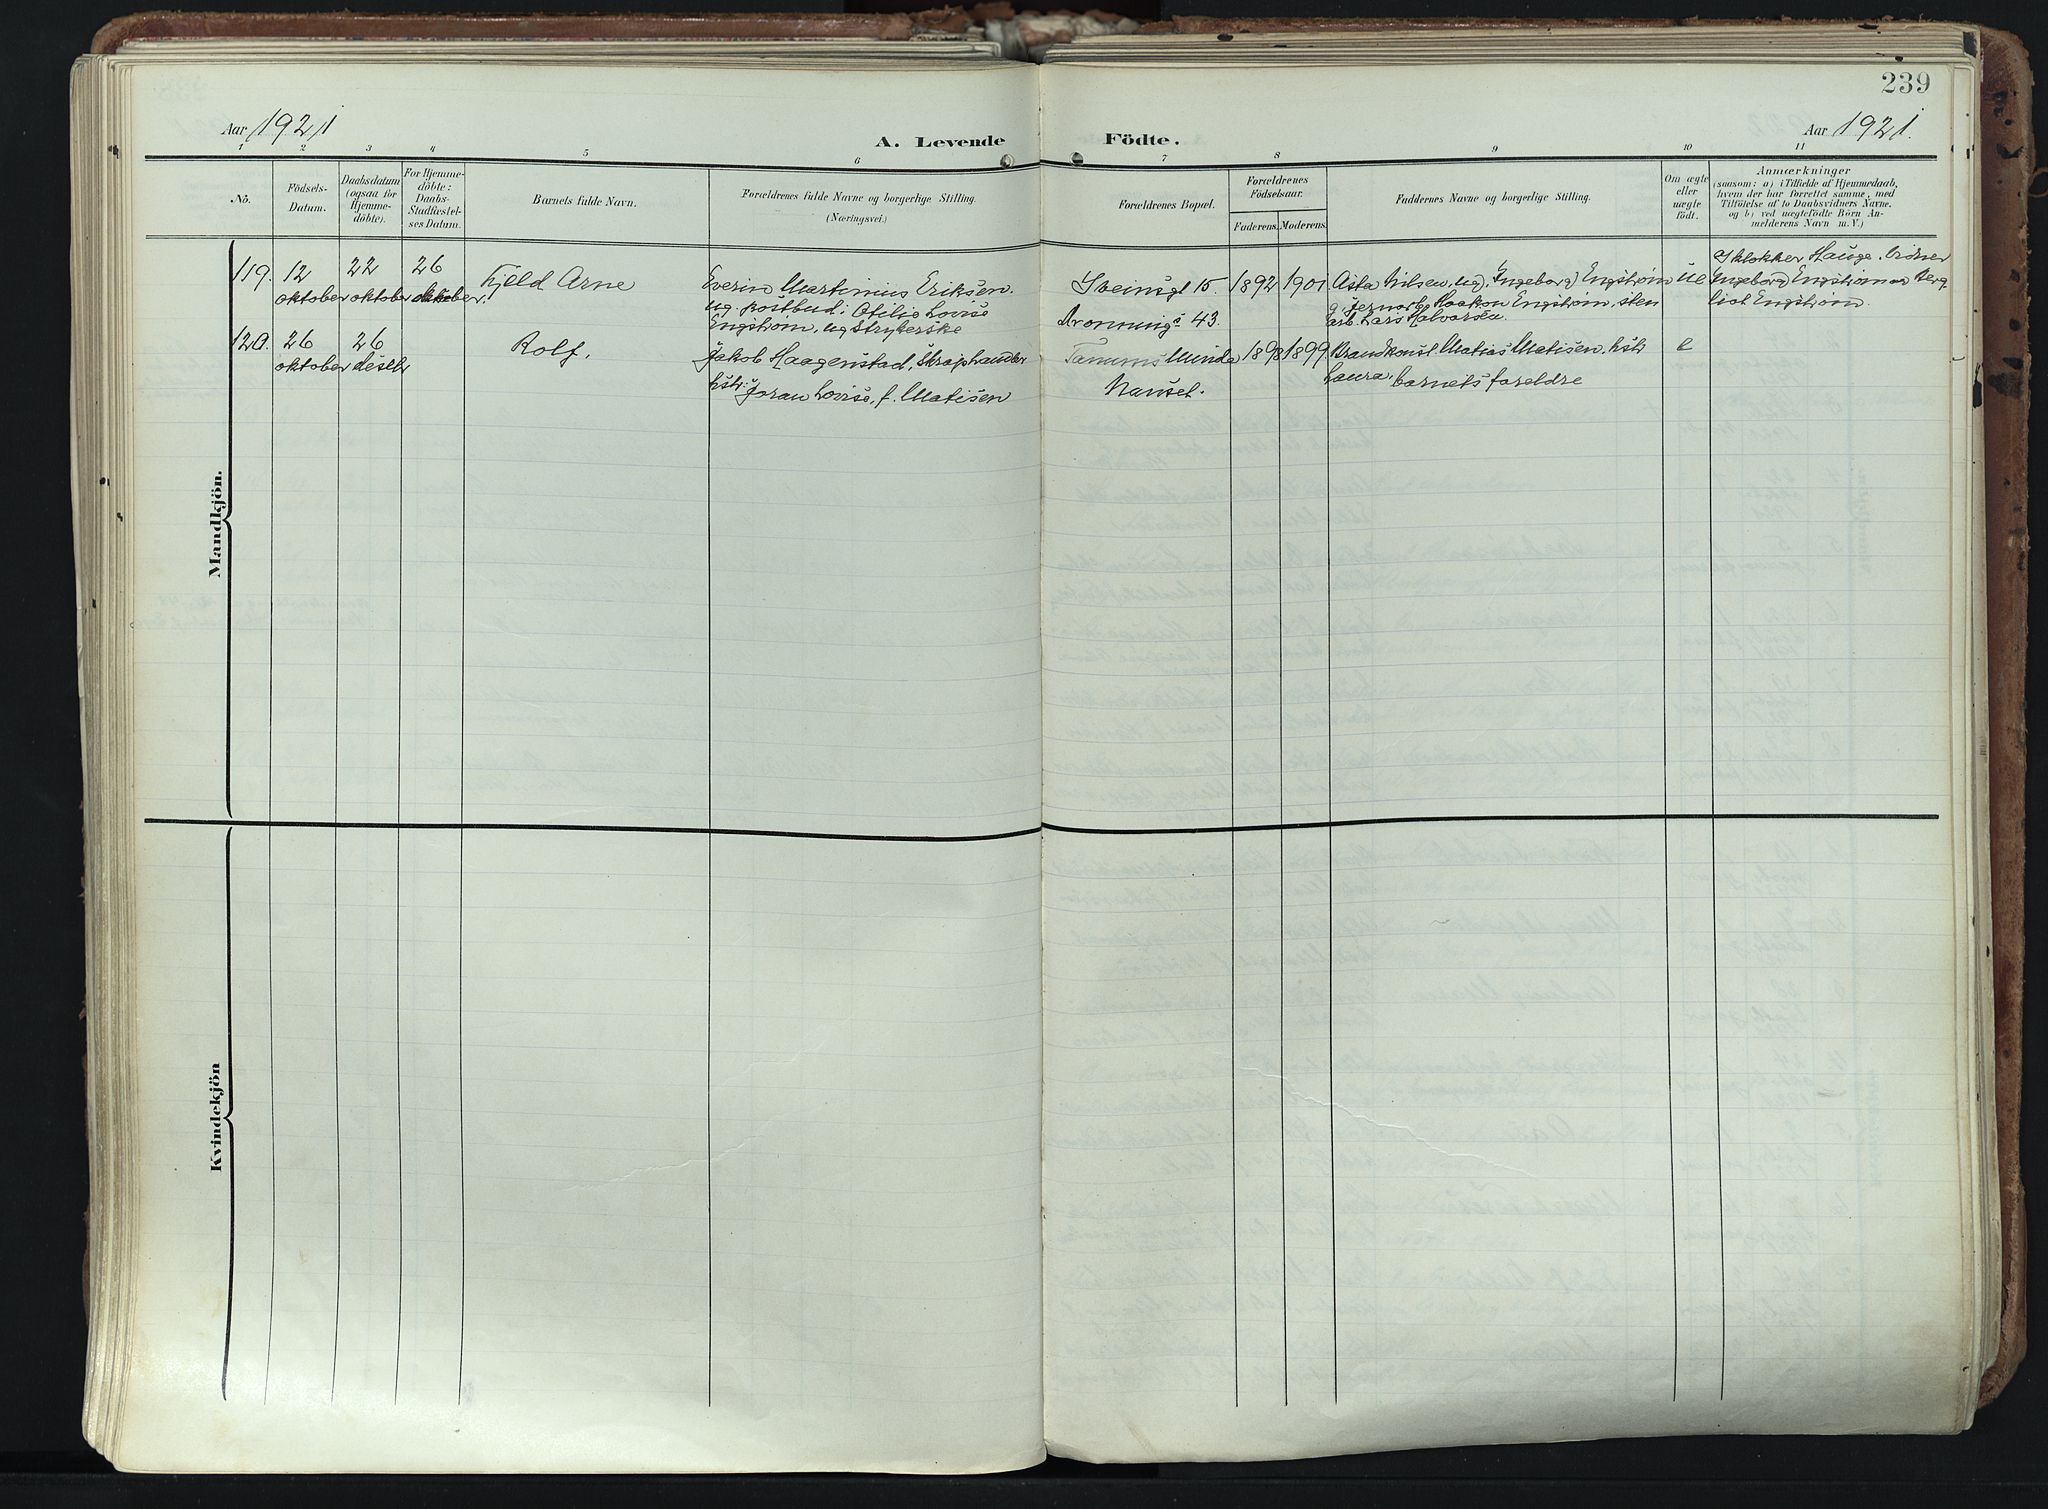 239
Aar 1921
A. Levende Födte.
Aar 1921.
1 2 3 4 5 6 7 8 9 10 11
No.
Födsels-
Datum.
Daabsdatum
(ogsaa for
Hjemme-
döbte).
For Hjemme-
döbte:
Daabs-
Stadfæstel-
ses Datum.
Barnets fulde Navn.
Forældrenes fulde Navne og borgerlige Stilling.
(Næringsvei.)
Forældrenes Bopæl.
Forældrenes
Födselsaar.
Faderens.
Moderens.
Faddernes Navne og borgerlige Stilling.
Om ægte
eller
uægte
födt.
Anmærkninger
(saasom: a) i Tilfælde af Hjemmedaab,
hvem der har forrettet samme, med
Tilföielse af to Daabsvidners Navne,
og b) ved uægtefödte Börn An-
melderens Navn m. V.)
Mandkjön.
119.
12
oktober
22
oktober
26
oktober.
Kjeld Arne
Everin Martinius Eriksen.
ug. postbud; Otilie Lovise
Engstrøm, ug strykerske
Sveinsgt 15.
Dronningsg 43.
1892
1901
Asta Nilsen, ug, Ingeborg Engstrøm
Haakon Engstrøm, sten
arb. Lars Halvorsen
ue
Klokker Hauge. Vidner
Ingeborg Engstrøm og Berg
liot Engstrøm.
120.
26
oktober
26
desbr
Rolf.
Jakob Haagenstad, skraphandler
hstr: Joran Lovise, f. Matisen
Tanums Minde
Nanset.
1898
1899
Brandkonst Matias Matisen, hstr
Laura, barnets foreldre
e
Kvindekjön